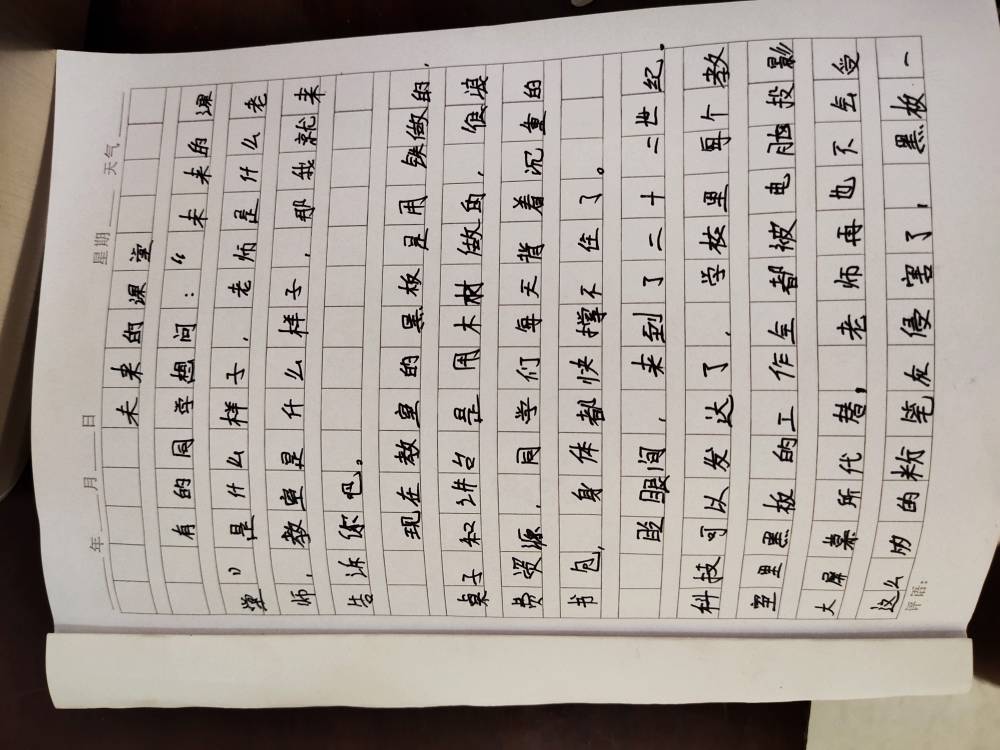 年 月 日 星期 天气
未来的课堂
有的同学想问：“未来的课
堂”是什么样子，老师是什么老
师，教室是什么样子，那我就来
告诉你吧。
现在教室的黑板是用铁做的，
桌子和讲台是用木材做的，但浪
费资源，同学们每天背着沉重的
书包，身体都快撑不住了。
眨眼间，来到了二十二世纪。
科技可以发达了，学校里每个教
室里黑板的工作全都被电脑投影
大屏幕所代替，老师再也不会受
这么的粉笔灰侵害了，黑板一
评语：